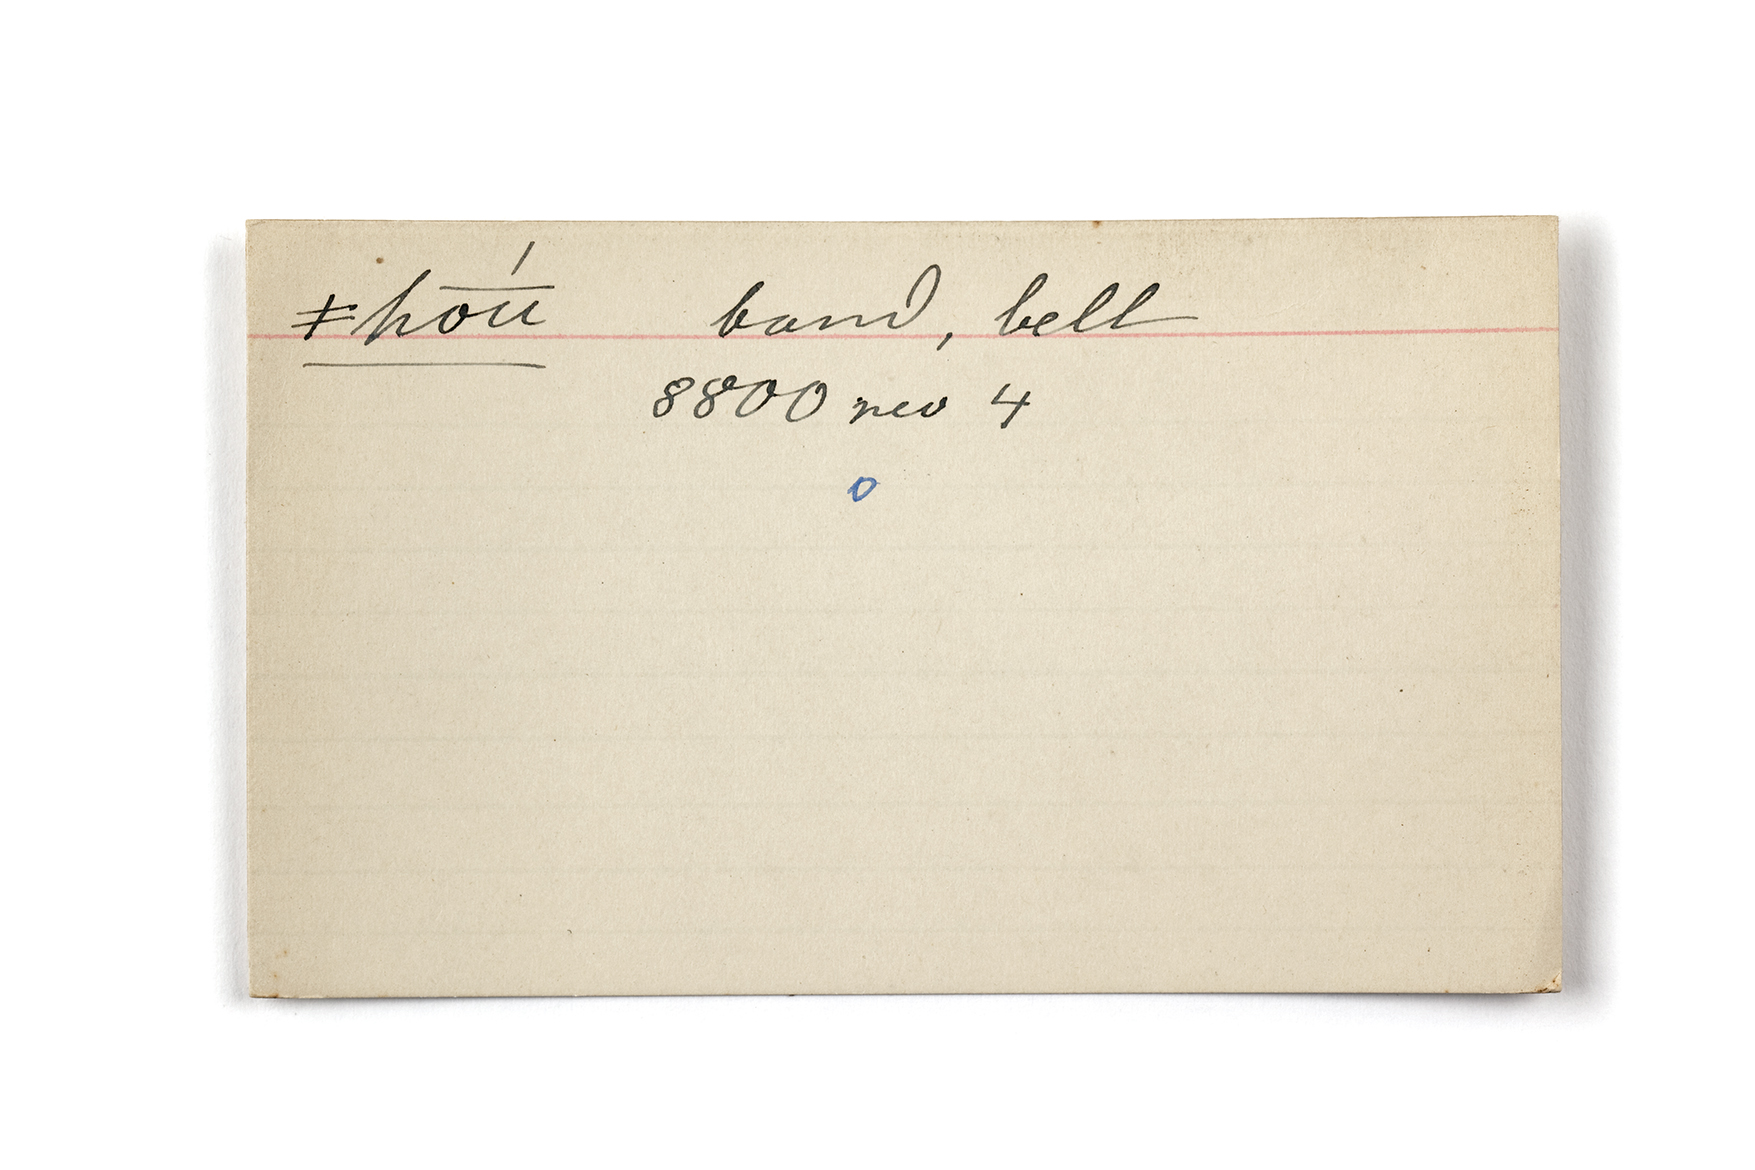 ǂhōū́ band, belt
8800 rev 4
o